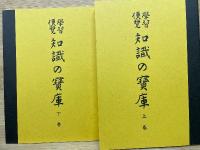 學習
便覽
知識の寶庫
上卷
學習
便覽
知識の寶庫
下卷